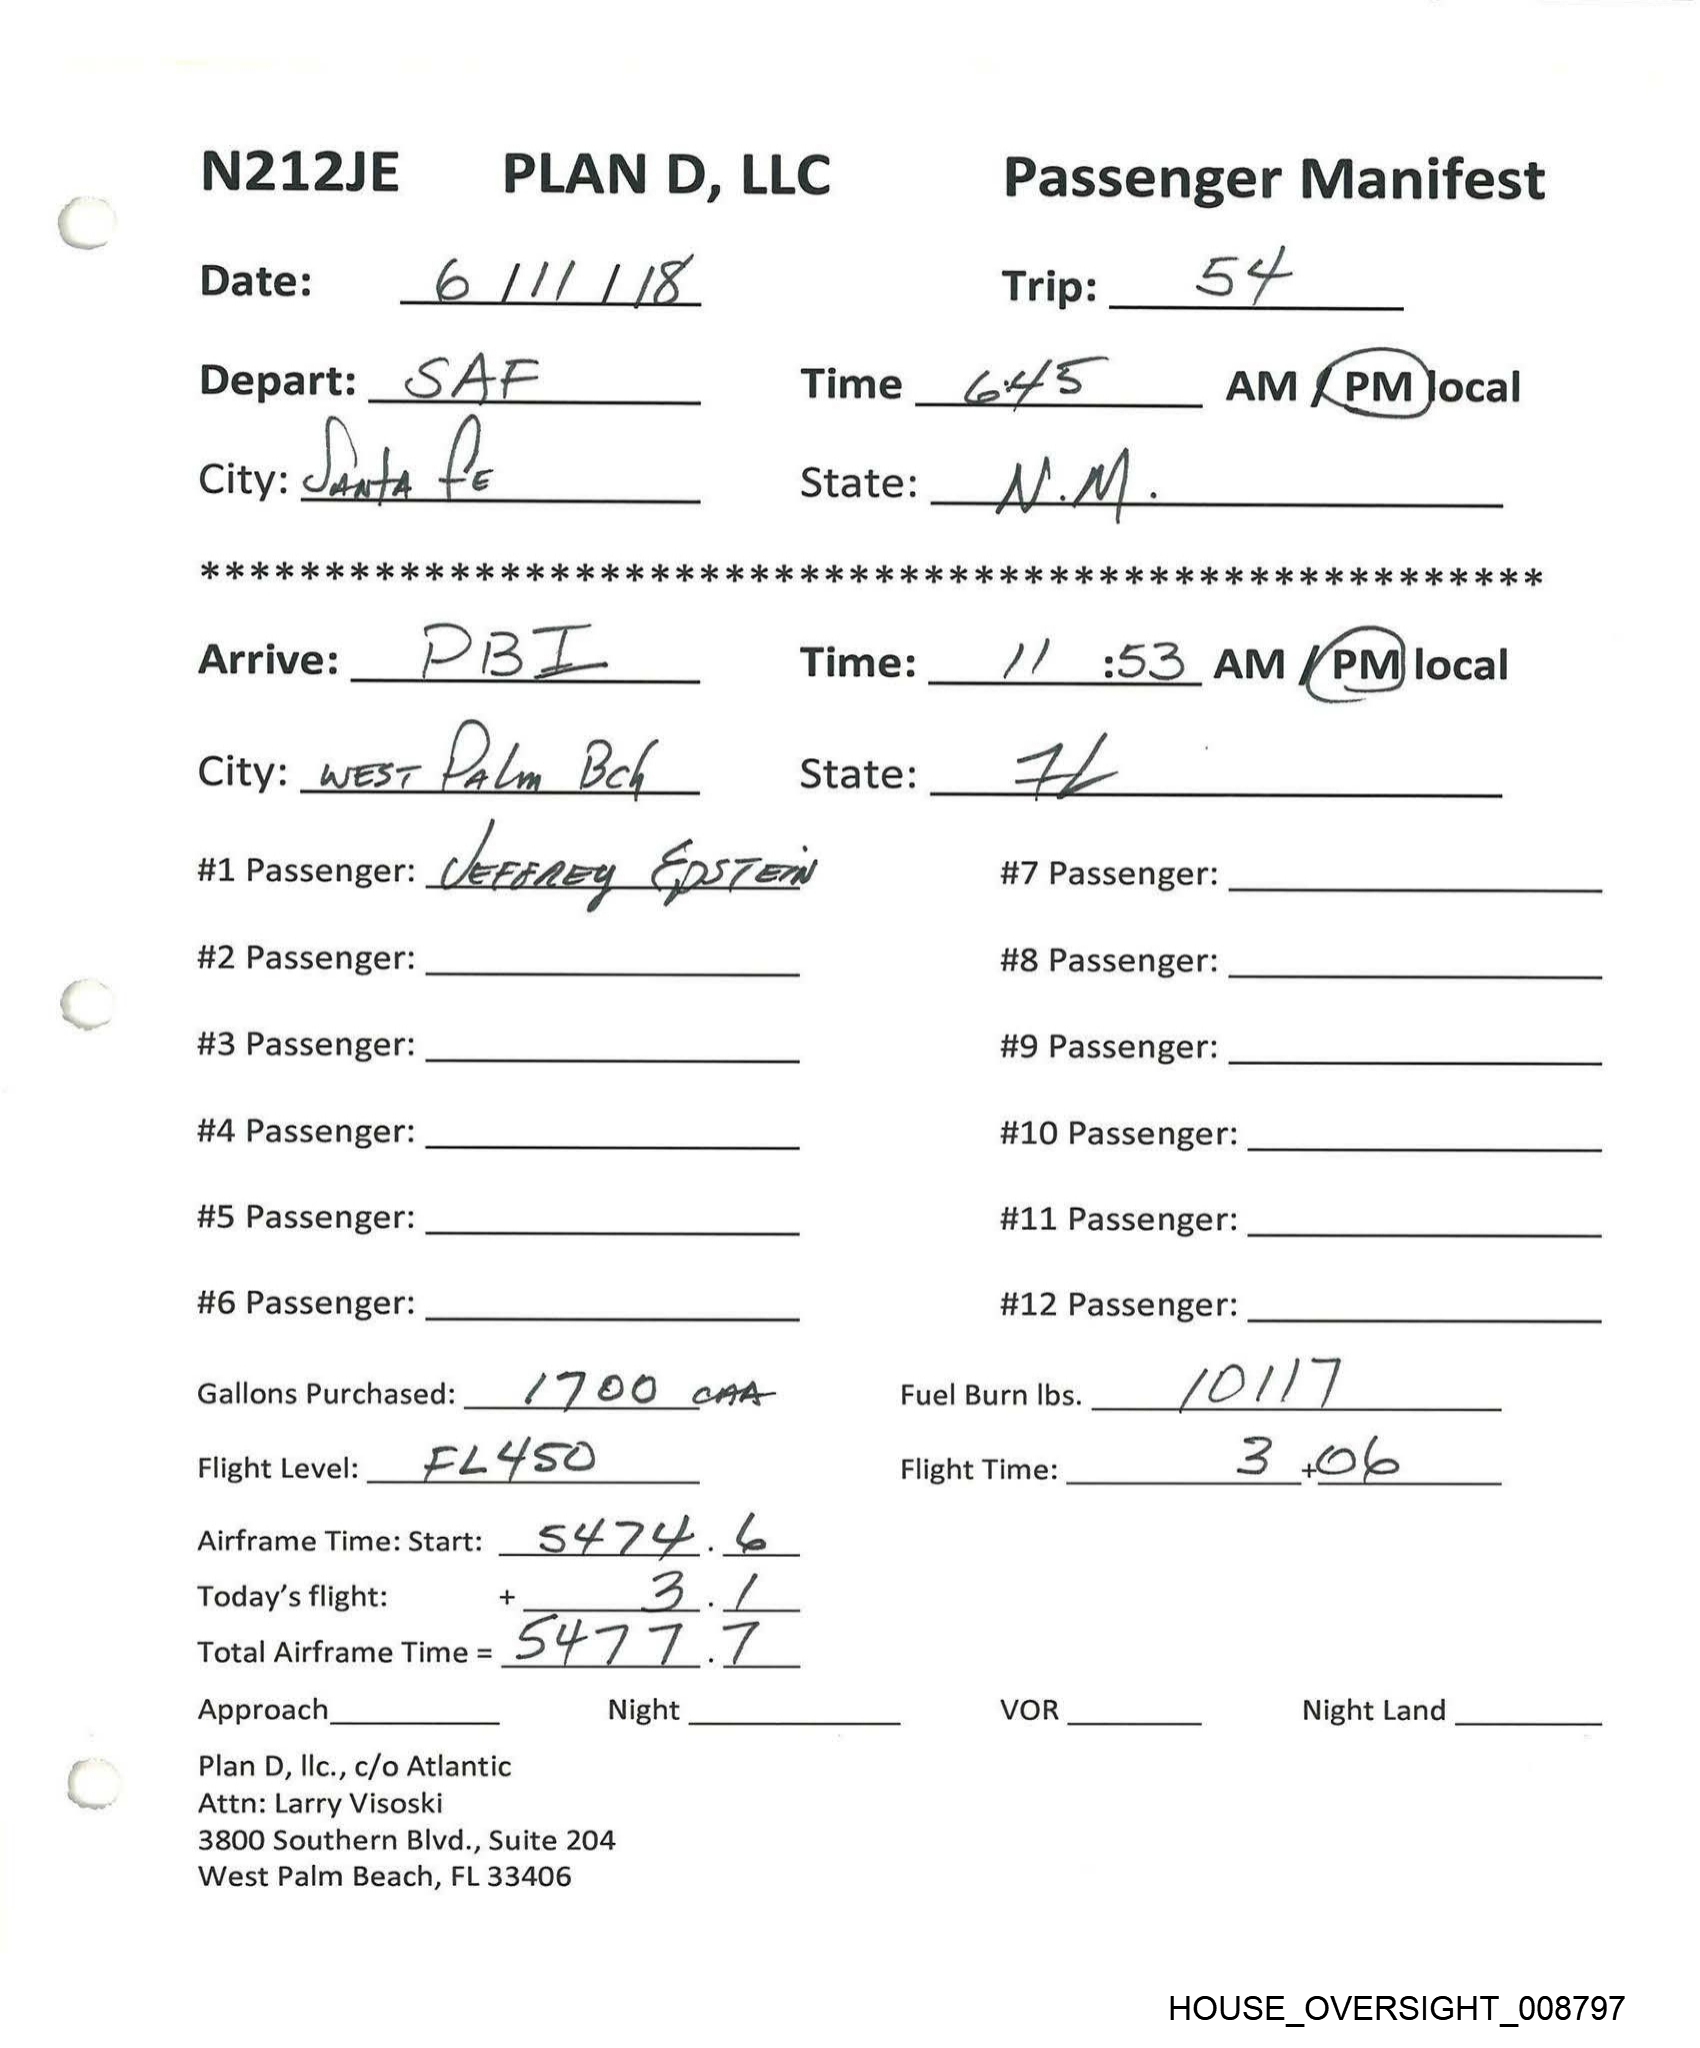 N212JE PLAN D, LLC Passenger Manifest
Date: 6 / 11 / 18 Trip: 54
Depart: SAF Time 6:45 AM / PM local
City: Santa Fe State: N.M.
******************************************************
Arrive: PBI Time: 11 :53 AM / PM local
City: West Palm Bch State: FL
#1 Passenger: Jeffrey Epstein #7 Passenger:
#2 Passenger: #8 Passenger:
#3 Passenger: #9 Passenger:
#4 Passenger: #10 Passenger:
#5 Passenger: #11 Passenger:
#6 Passenger: #12 Passenger:
Gallons Purchased: 1700 CAA Fuel Burn lbs. 10117
Flight Level: FL450 Flight Time: 3 +06
Airframe Time: Start: 5474.6
Today's flight: + 3.1
Total Airframe Time = 5477.7
Approach Night VOR Night Land
Plan D, llc., c/o Atlantic
Attn: Larry Visoski
3800 Southern Blvd., Suite 204
West Palm Beach, FL 33406
HOUSE_OVERSIGHT_008797